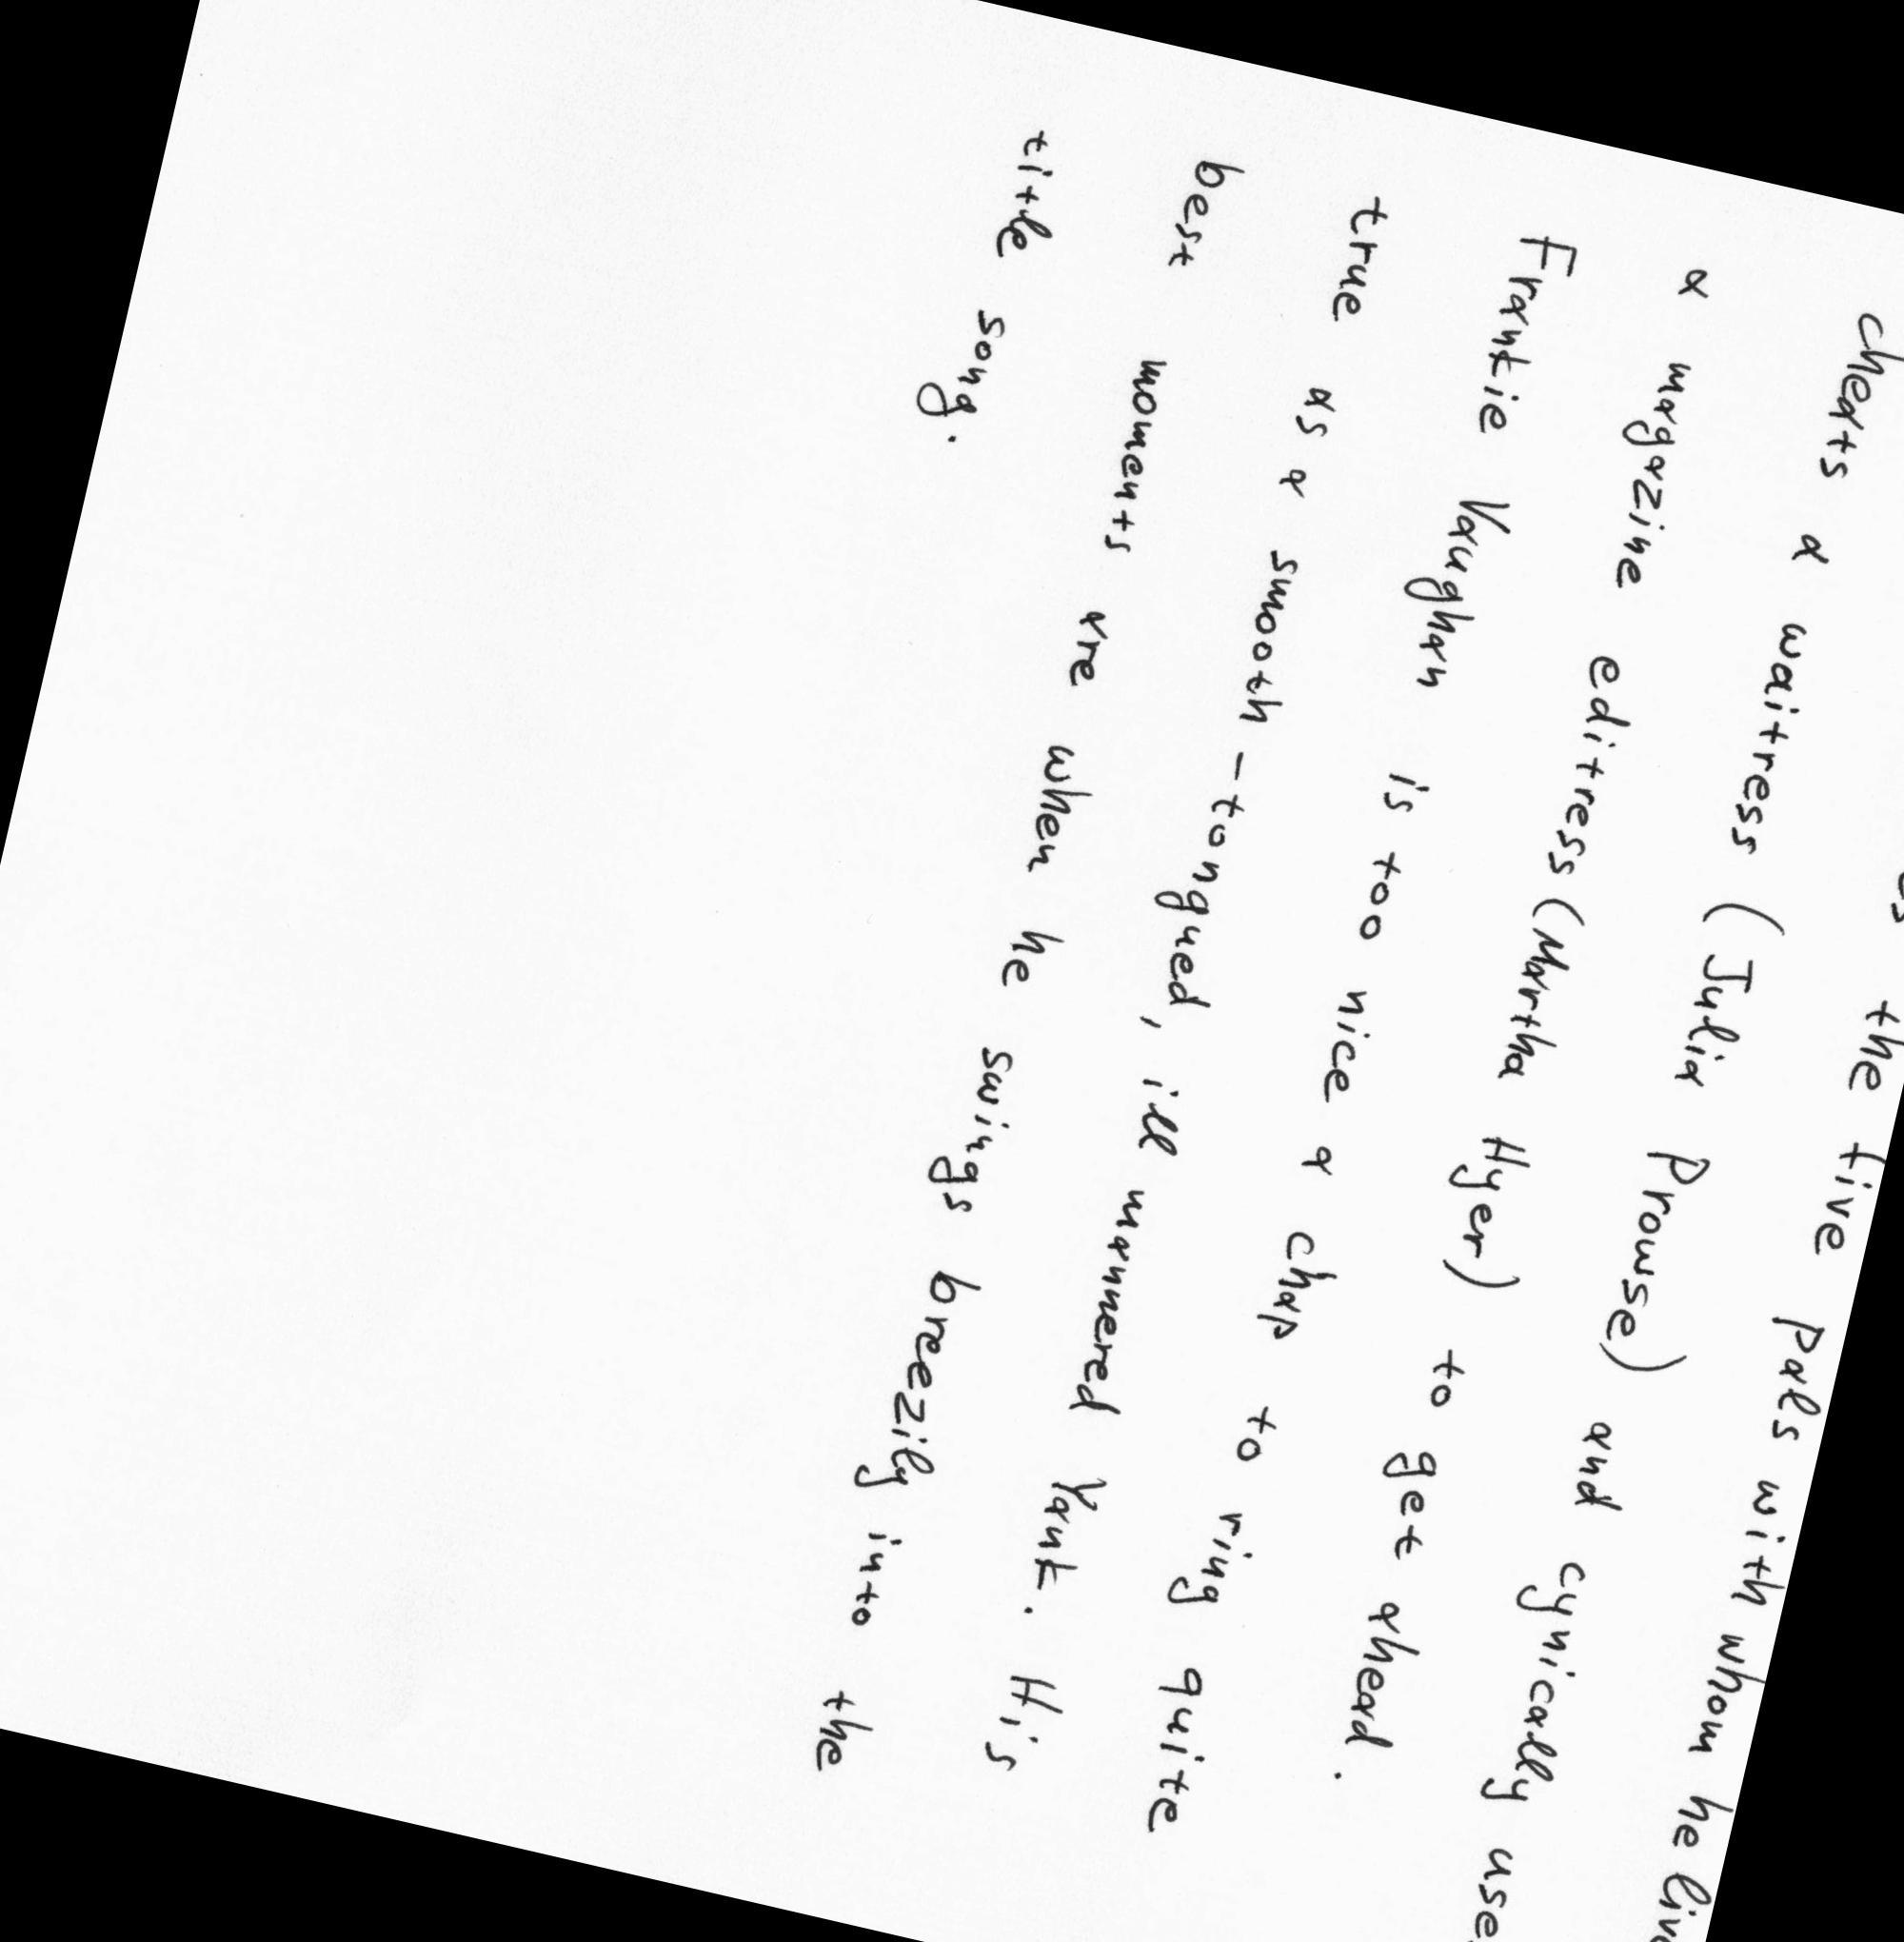 the five pals with whom he
cheats a waitress (Julia Prowse) and cynically use
a magazine editress (Martha Hyer) to get ahead.
Frankie Vaughan is too nice a chap to ring quite
true as a smooth-tongued, ill mannered Yank. His
best moments are when he swings breezily into the
title song.